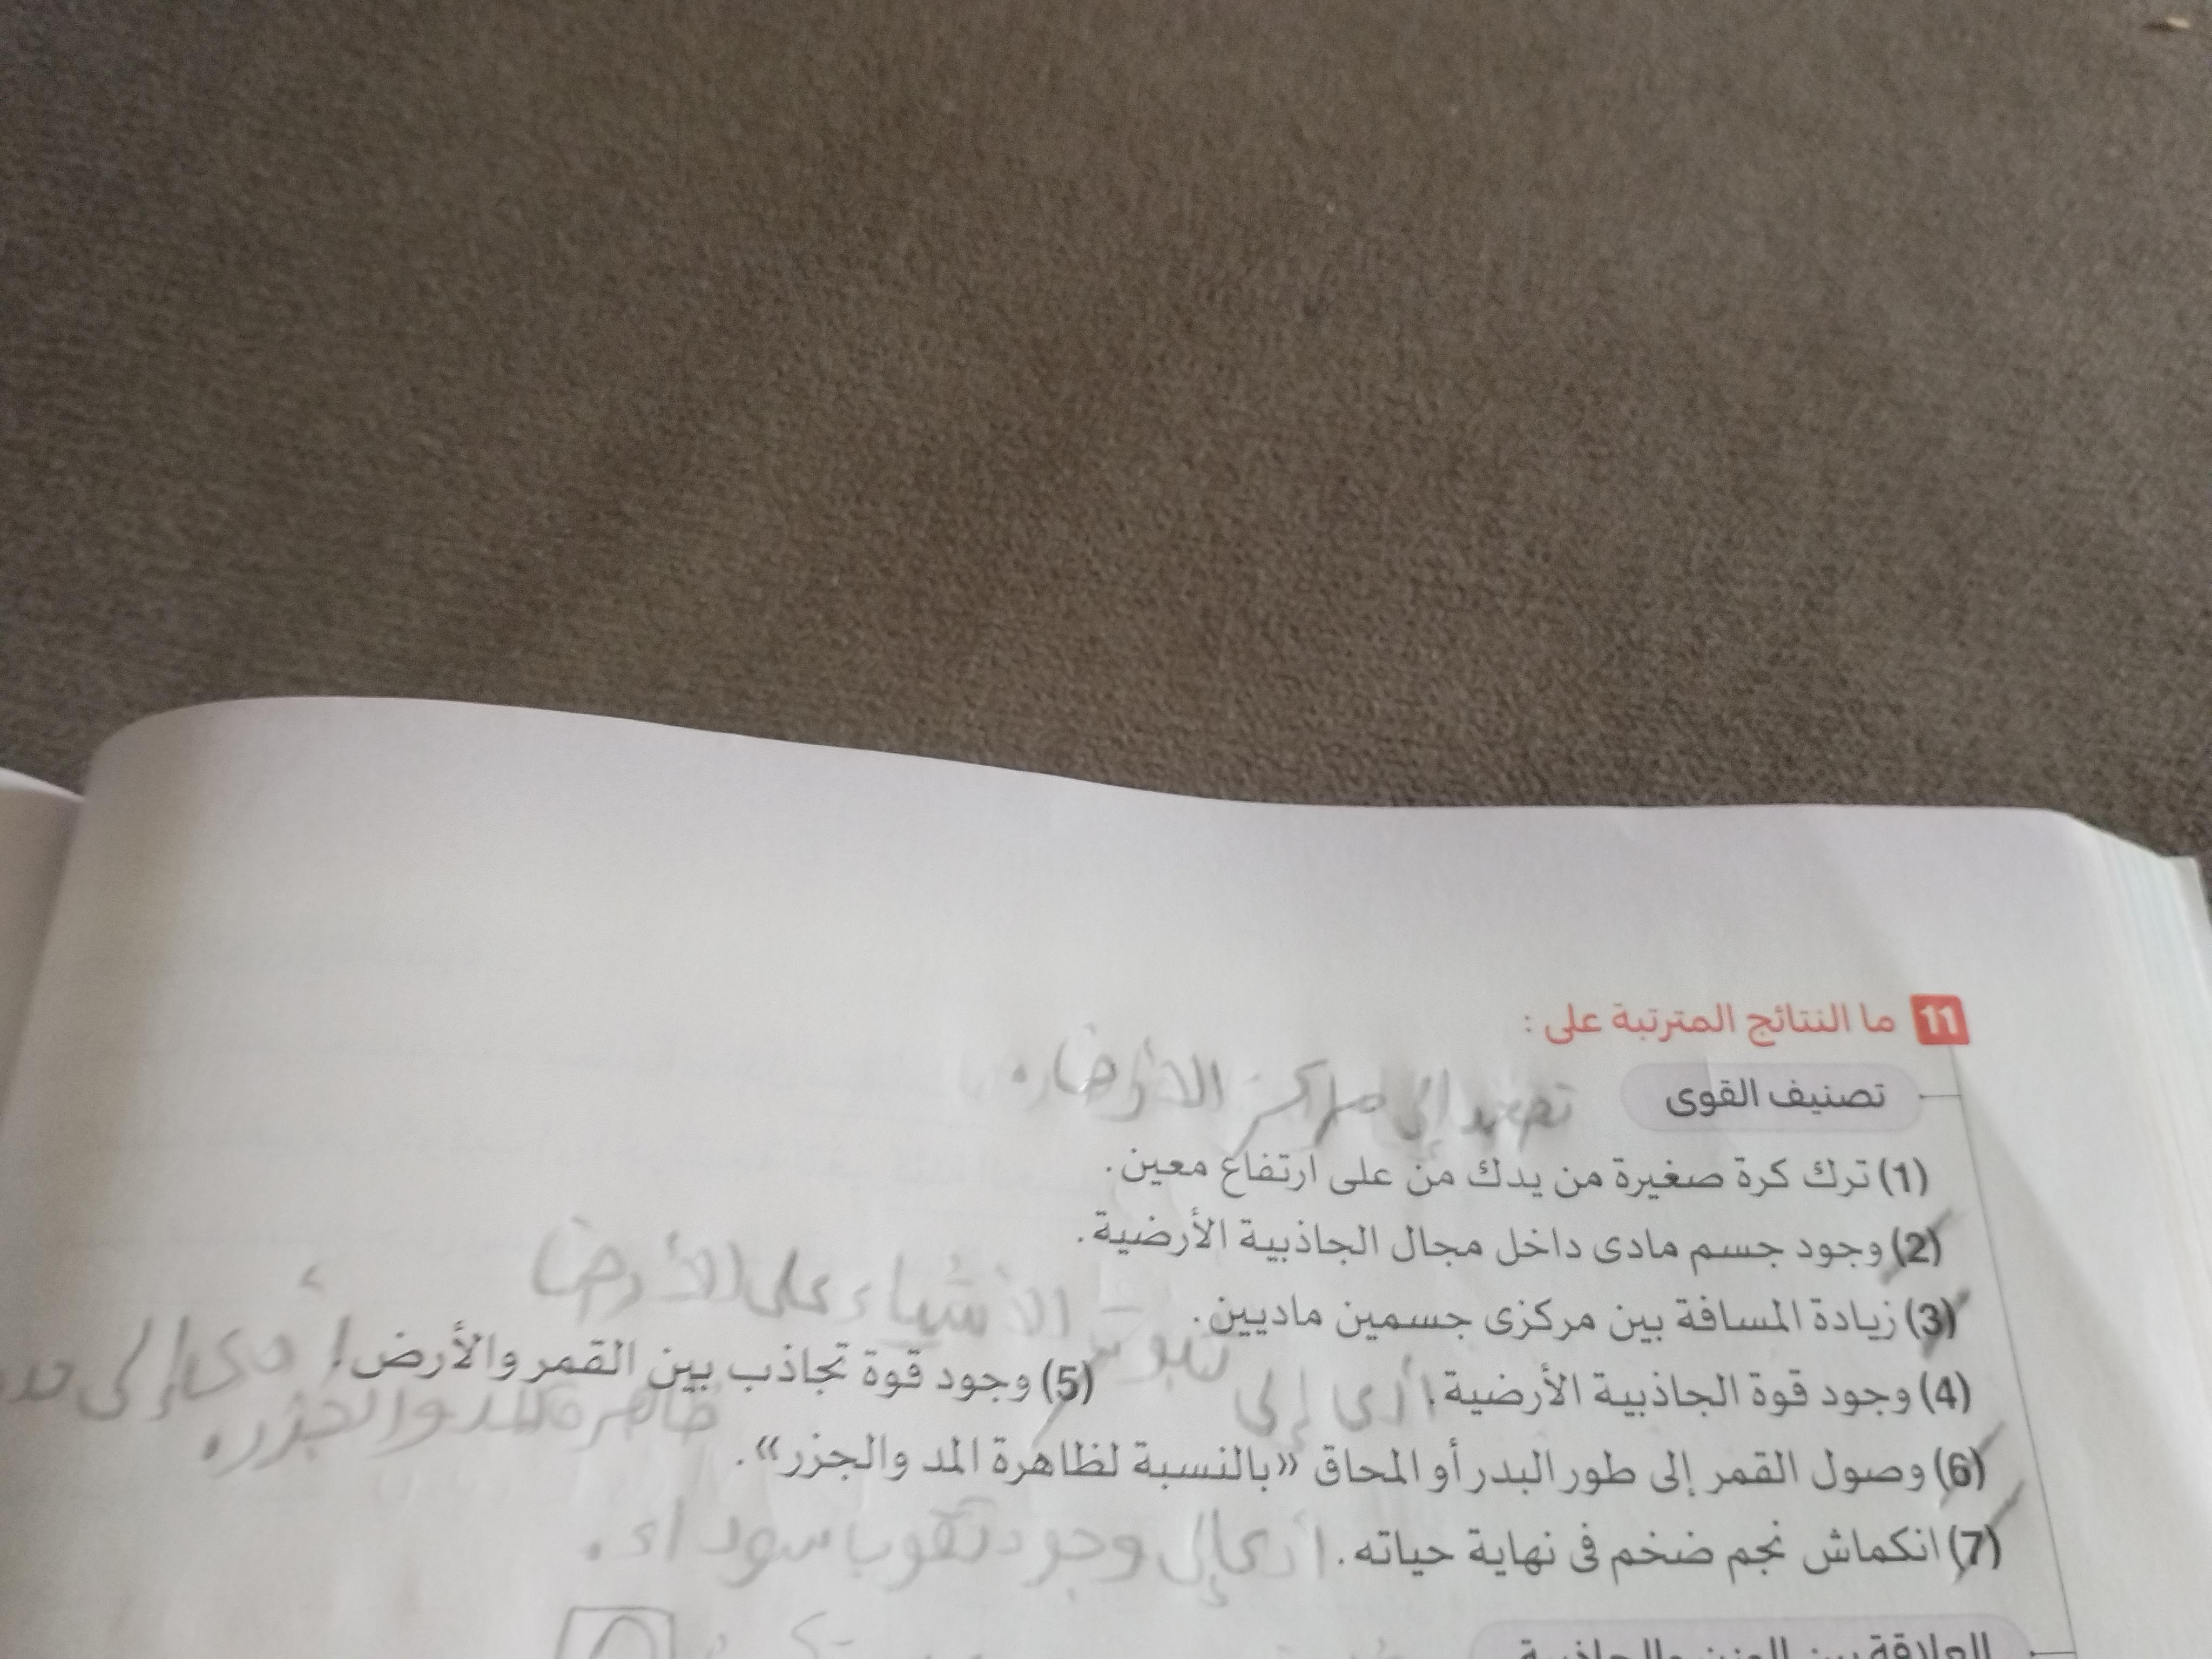 11 ما النتائج المترتبة على :
تصنيف القوى
إلى مركز الأرض.
(1) ترك كرة صغيرة من يدك من على ارتفاع معين.
(2) وجود جسم مادى داخل مجال الجاذبية الأرضية.
الأشياء على الأرض
(3) زيادة المسافة بين مركزى جسمين ماديين.
(4) وجود قوة الجاذبية الأرضية. أدى إلى
(5) وجود قوة تجاذب بين القمر والأرض. أدى إلى
ظاهرة المد والجزر.
(6) وصول القمر إلى طور البدر أو المحاق «بالنسبة لظاهرة المد والجزر».
(7) انكماش نجم ضخم فى نهاية حياته. أدى إلى وجود ثقوب سوداء.
العلاقة بين الوزن والجاذبية